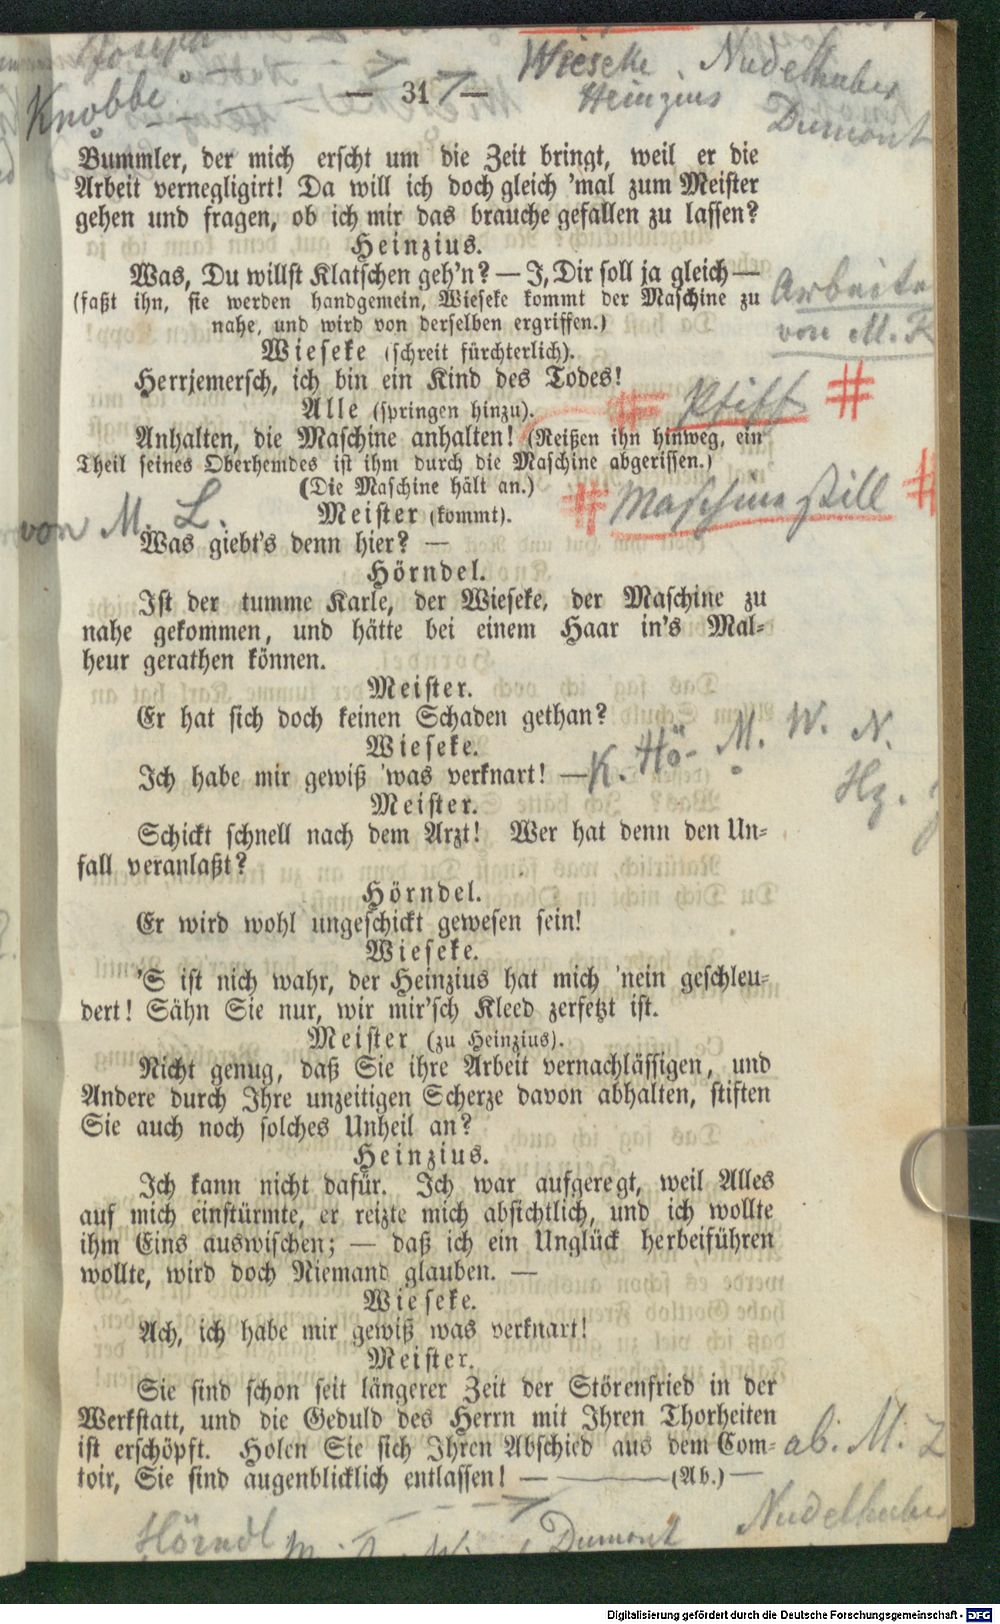 Wieseke Nudelhuber
Knobbe — 31 — Heinzius Dumont
Bummler, der mich erscht um die Zeit bringt, weil er die
Arbeit vernegligirt! Da will ich doch gleich 'mal zum Meister
gehen und fragen, ob ich mir das brauche gefallen zu lassen?
Heinzius.
Was, Du willst Klatschen geh'n? — I, Dir soll ja gleich —
(faßt ihn, sie werden handgemein, Wieseke kommt der Maschine zu
nahe, und wird von derselben ergriffen.)
Arbeite
von M. R
Wieseke (schreit fürchterlich).
Herrjemersch, ich bin ein Kind des Todes!
Alle (springen hinzu). # Pfiff #
Anhalten, die Maschine anhalten! (Reißen ihn hinweg, ein
Theil seines Oberhemdes ist ihm durch die Maschine abgerissen.)
(Die Maschine hält an.) # Maschine still #
Meister (kommt).
von M. L.
Was giebt's denn hier? —
Hörndel.
Ist der tumme Karle, der Wieseke, der Maschine zu
nahe gekommen, und hätte bei einem Haar in's Mal-
heur gerathen können.
Meister.
Er hat sich doch keinen Schaden gethan?
Wieseke.
Ich habe mir gewiß 'was verknart! — K. Hö- M. W. N.
Hz.
Meister.
Schickt schnell nach dem Arzt! Wer hat denn den Un-
fall veranlaßt?
Hörndel.
Er wird wohl ungeschickt gewesen sein!
Wieseke.
'S ist nich wahr, der Heinzius hat mich 'nein geschleu-
dert! Sähn Sie nur, wir mir'sch Kleed zerfetzt ist.
Meister (zu Heinzius).
Nicht genug, daß Sie ihre Arbeit vernachlässigen, und
Andere durch Ihre unzeitigen Scherze davon abhalten, stiften
Sie auch noch solches Unheil an?
Heinzius.
Ich kann nicht dafür. Ich war aufgeregt, weil Alles
auf mich einstürmte, er reizte mich absichtlich, und ich wollte
ihm Eins auswischen; — daß ich ein Unglück herbeiführen
wollte, wird doch Niemand glauben. —
Wieseke.
Ach, ich habe mir gewiß was verknart!
Meister.
Sie sind schon seit längerer Zeit der Störenfried in der
Werkstatt, und die Geduld des Herrn mit Ihren Thorheiten
ist erschöpft. Holen Sie sich Ihren Abschied aus dem Com- ab. M.
toir, Sie sind augenblicklich entlassen! — (Ab.) —
Hörndl Dumont Nudelhuber
Digitalisierung gefördert durch die Deutsche Forschungsgemeinschaft - DFG